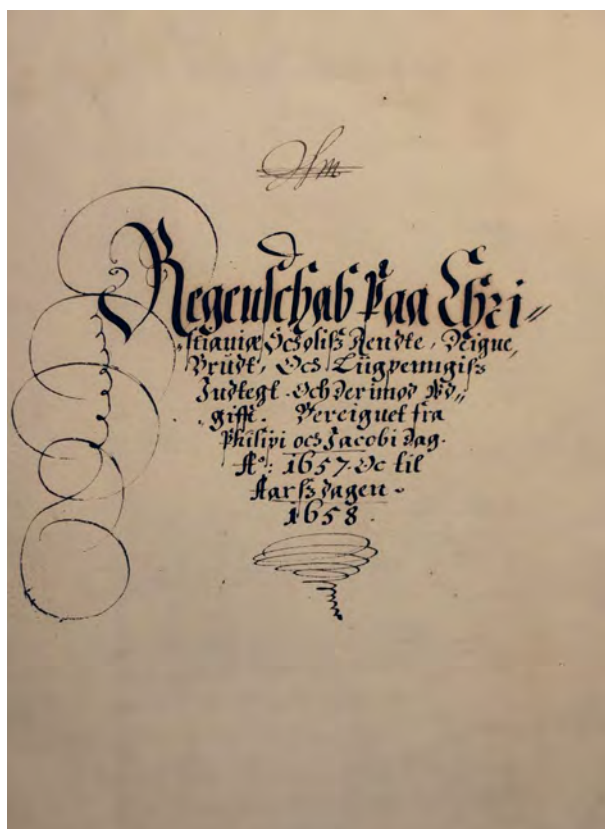 Regenschab Paa Chri„
stianiæ Scholiss Rendte,
Brüdt, Och Lügpenngiss
Indtegt. Och der imod Vd„
gifft. Bereignet fra
Philipi och Jacobi Dag.
Aº: 1657. Oc til
Aarssdagen.
1658.